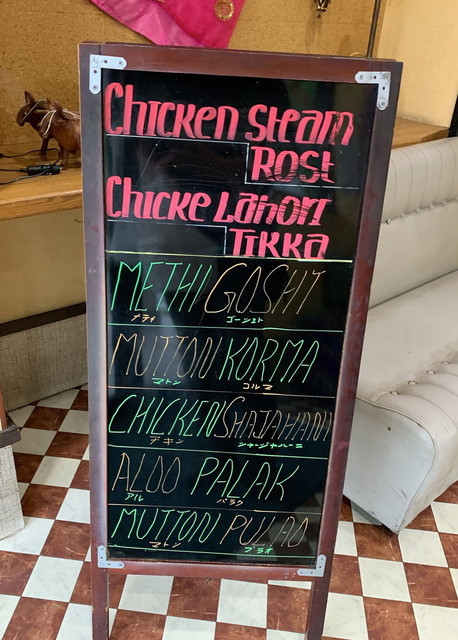 Chicken Steam
Rost
Chicke Lahori
Tikka
METHI GOSHT
メティ ゴーシュト
MUTTON KORMA
マトン コルマ
CHICKEN SHAJAHANI
チキン シャージャハーニ
ALOO PALAK
アル パラク
MUTTON PULAO
マトン プラオ